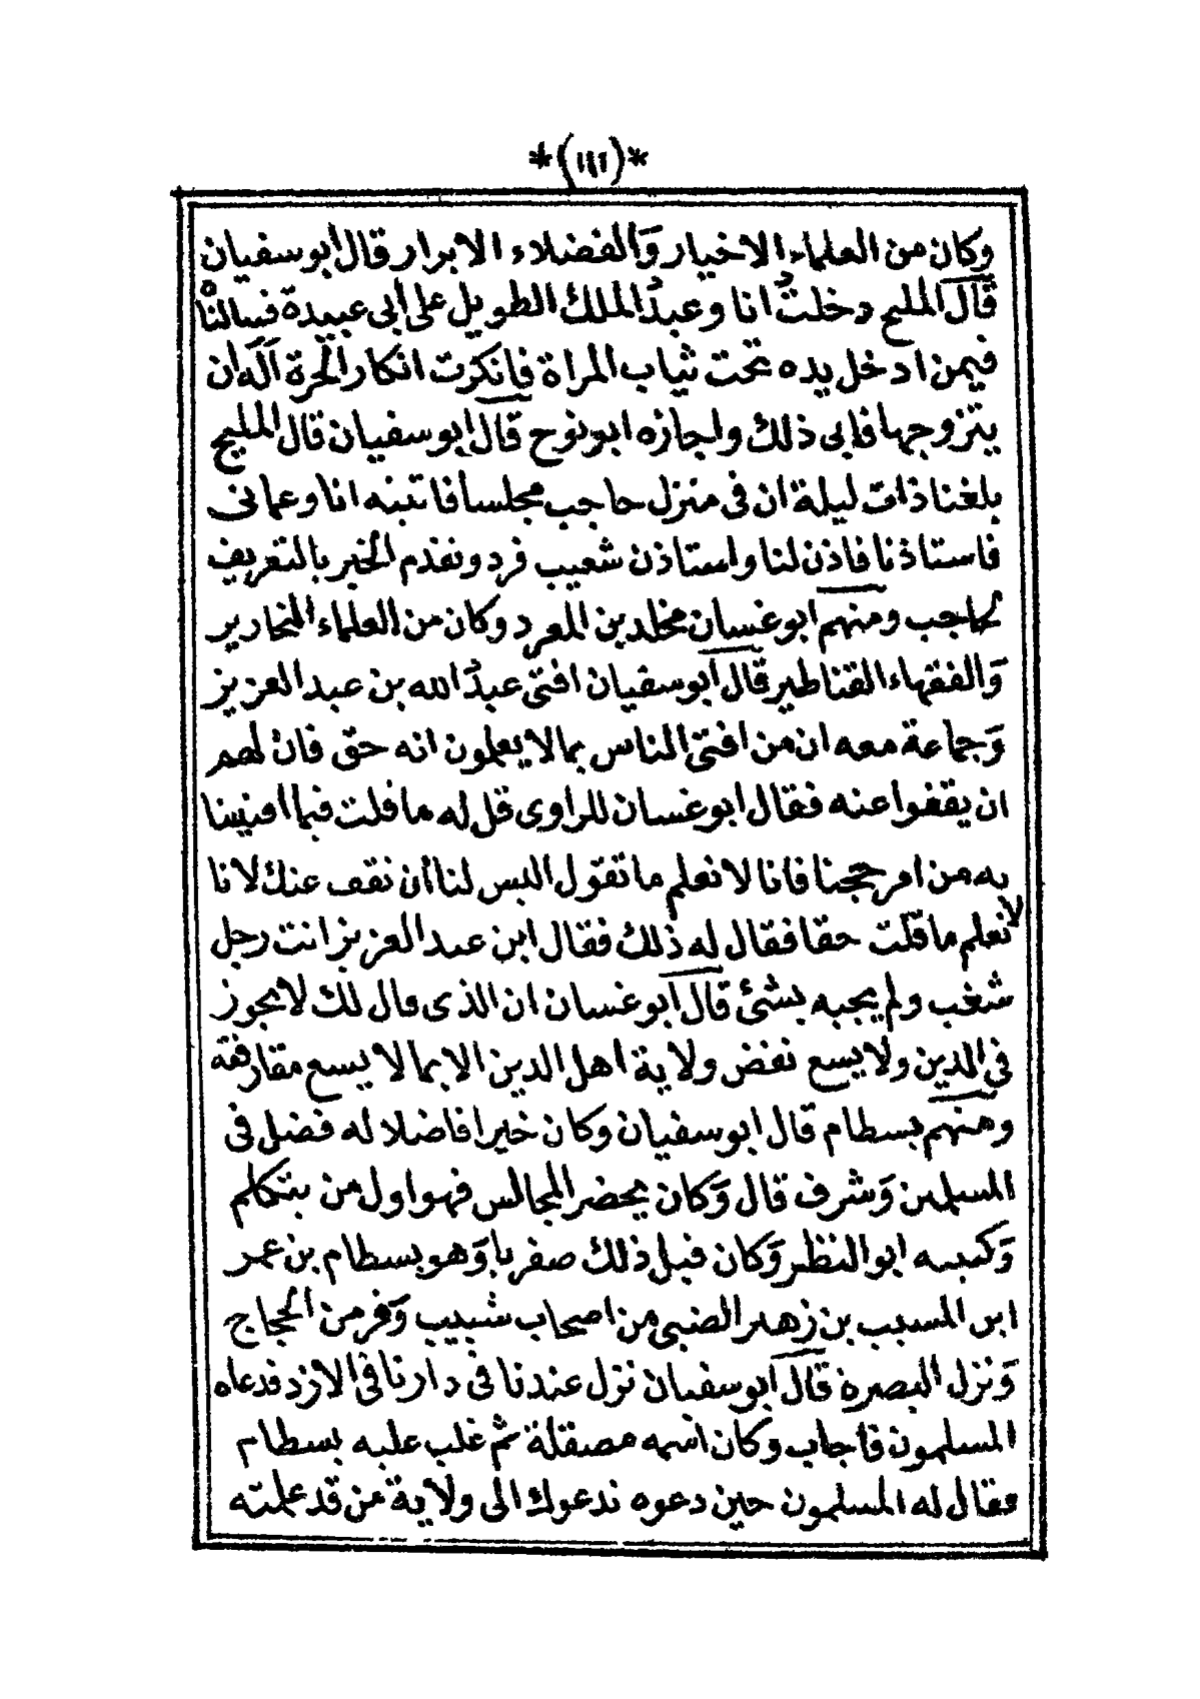 *(١١١)*
وكان من العلماء الاخيار وَالفضلاء الابرار قال أبو سفيان
قَالَ المليح دخلتُ انا وعبدُ الملك الطويل على أبى عبيدة فسالنْا
فيمن ادخل يده تحت ثياب المراة فانكرت انكار الحرة أَلَه ان
يتزوجها فابى ذلك واجازه ابو نوح قال ابو سفيان قال المليح
بلغنا ذات ليلة ان فى منزل حاجب مجلسا فاتتبنه انا وعمانى
فاستاذنا فاذن لنا واستاذن شعيب فرد ونقدم الخبر بالتعريف
لحاجب ومنهم ابو غسان مخلد بن المعرد وكان من العلماء النحارير
وَالفقهاء القناطير قال أبو سفيان افتى عبدُ الله بن عبد العزيز
وَجماعة معه ان من افتى الناس بما لا يعلمون انه حق فان لهم
ان يقفوا عنه فقال ابو غسان للراوى قل له ما قلت فيما افتيتنا
به من امر حججنا فانا لا نعلم ما تقول اليس لنا أن نقف عنك لانا
لا نعلم ما قلت حقا فقال له ذلك فقال ابن عبد العزيز انت رجل
شغب ولم يجبه بشئ قال أبو غسان ان الذى قال لك لا يجوز
فى الدين ولا يسع نفض ولاية اهل الدين الا بما لا يسع مقارفته
ومنهم بسطام قال ابو سفيان وكان خيرا فاضلا له فضل فى
المسلمين وَشرف قال وَكان يحضر المجالس فهو اول من يتكلم
وَكنيته ابو النظر وَكان قبل ذلك صفريا وَهو بسطام بن عمر
ابن المسيب بن زهير الضبى من اصحاب شبيب وَفر من الحجاج
وَنزل البصرة قال أبو سفيان نزل عندنا فى دارنا فى الازد فدعاه
المسلمون فاجاب وكان اسمه مصقلة ثم غلب عليه بسطام
فقال له المسلمون حين دعوه ندعوك الى ولاية من قد علمته